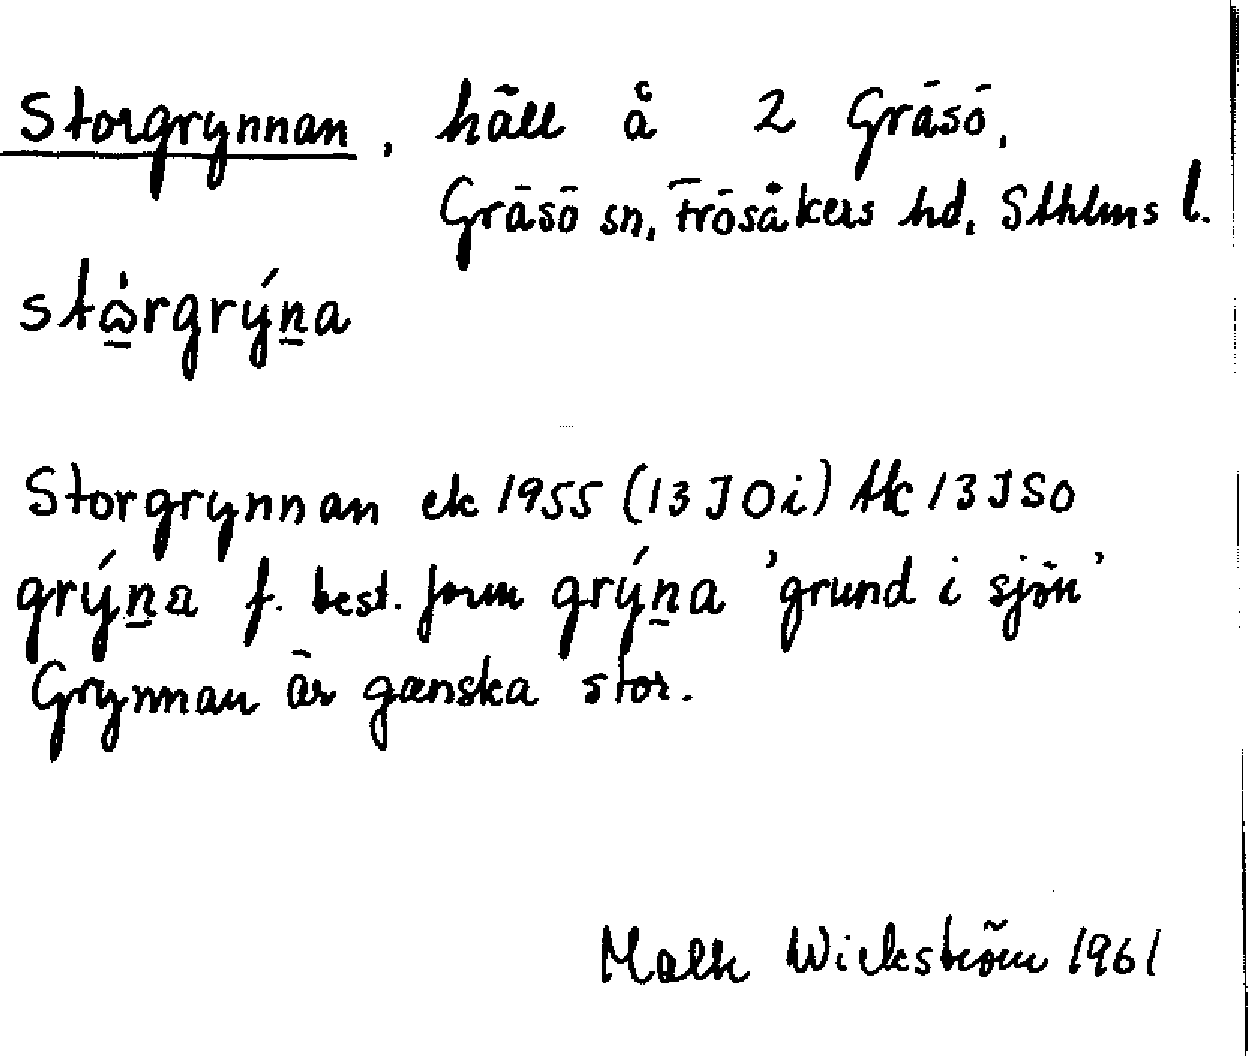 Storgrynnan, häll å 2 Gräsö,
Gräsö sn, Frösåkers hd, Sthlms l.
stω̲̇rgrýn̲a
Storgrynnan ek 1955 (13 J 0 i) tk 13 J SO
grýn̲a f. best. form grýn̲a 'grund i sjön'
Grynnan är ganska stor.
Wickström 1961